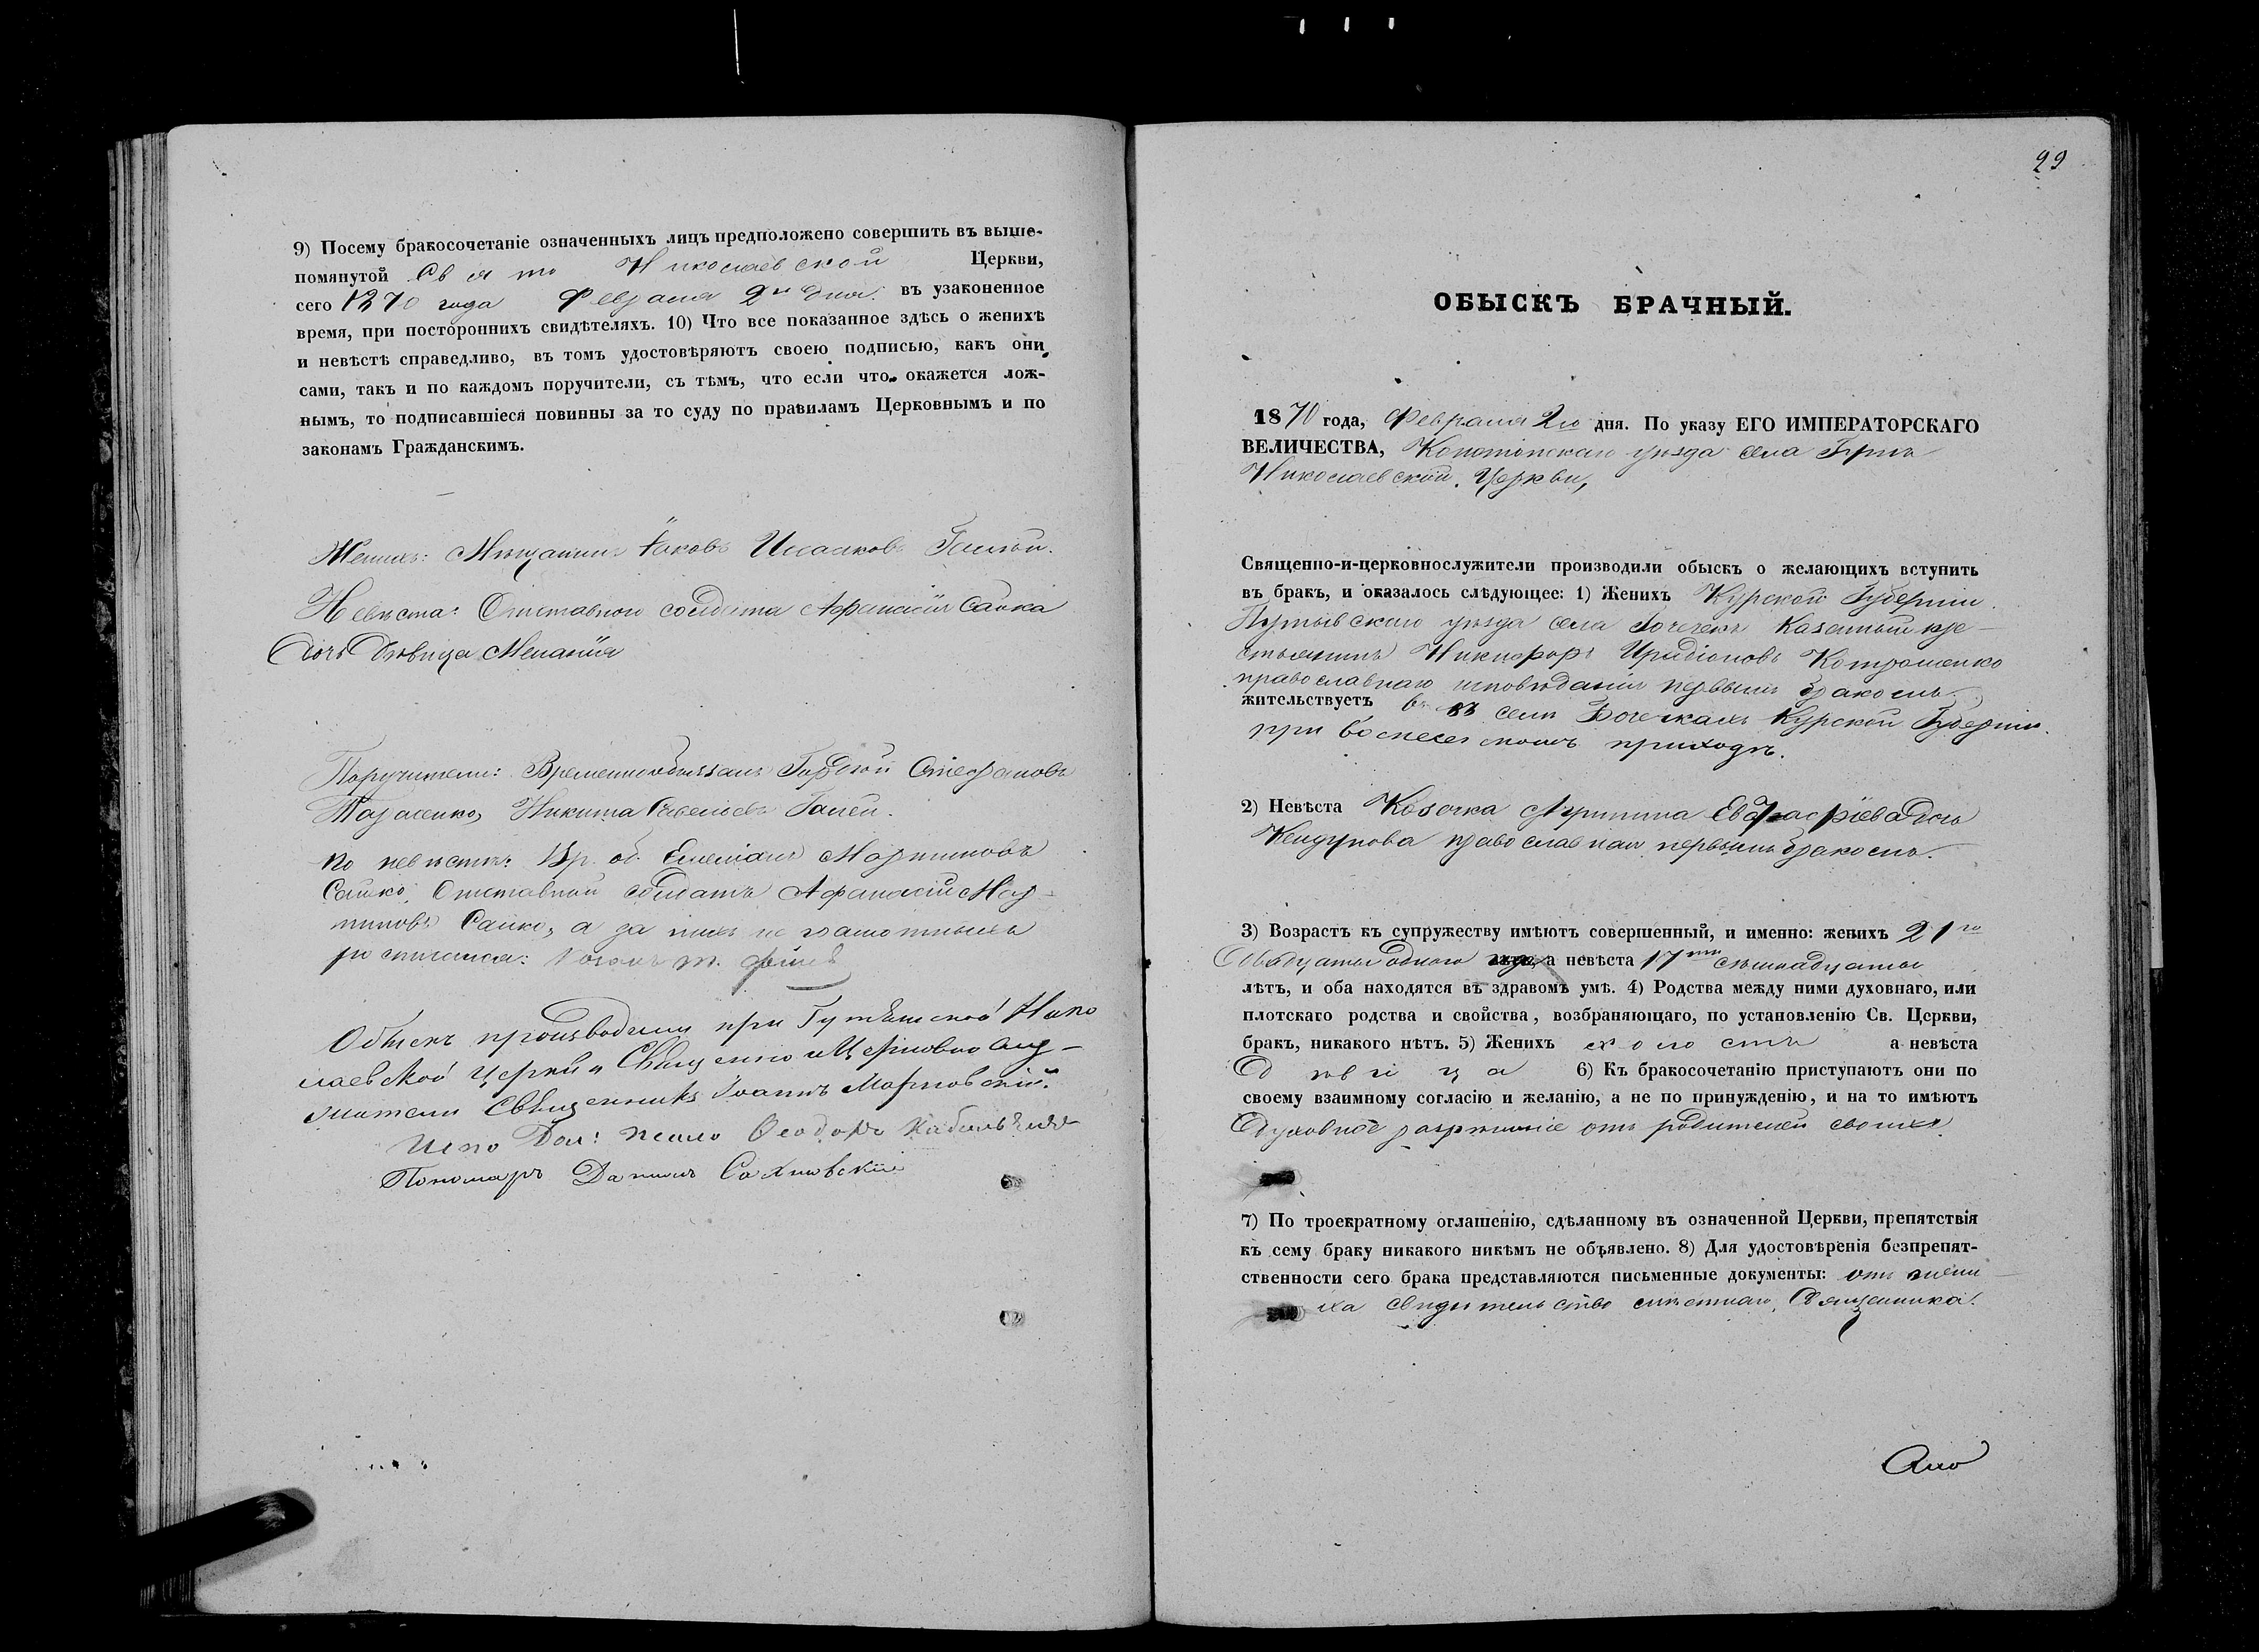 9) Посему бракосочетаніе означенныхъ лицъ предположено совершить въ выше-
помянутой Свято Николаевской Церкви,
сего 1870 года Февраля 2го дня въ узаконенное
время, при постороннихъ свидѣтеляхъ. 10) Что все показанное здѣсь о женихѣ
и невѣстѣ справедливо, въ томъ удостовѣряютъ своею подписью, какъ они
сами, такъ и по каждомъ поручители, съ тѣмъ, что если что окажется лож-
нымъ, то подписавшіеся повинны за то суду по правиламъ Церковнымъ и по
законамъ Гражданскимъ.
Женихъ: Мѣщанинъ Іаковъ Исааковъ Галѣй.
Невѣста: Отставного солдата Афанасія Сайка
дочь дѣвица Меланія
Поручители: Временнообязан: Гордѣй Стефановъ
Тарасенко, Никита Савельевъ Галей.
по невѣстѣ: Вр. об. Емеліанъ Мартиновъ
Сайко, Отставной солдатъ Афанасій Мар-
тиновъ Сайко, а за нихъ не грамотныхъ
росписался:
Обыскъ производили при Гутѣнской Нико
лаевской Церкви Священно и Церковно слу-
жители Священникъ Іоаннъ Марковскій.
Испо Дол: псало Ѳеодоръ
Пономарь Даніилъ Сахновскій
29
ОБЫСКЪ БРАЧНЫЙ.
1870 года, Февраля 2го дня. По указу ЕГО ИМПЕРАТОРСКАГО
ВЕЛИЧЕСТВА, Конотопскаго уѣзда села Гутъ
Николаевской Церкви,
Священно-и-церковнослужители производили обыскъ о желающихъ вступить
въ бракъ, и оказалось слѣдующее: 1) Женихъ Курской Губерніи
Путывскаго уѣзда села Бочечекъ Казенный кре-
стьянинъ Никифоръ Иридіоновъ Котрошенко
православнаго исповѣданія первымъ бракомъ.
жительствуетъ въ селѣ Бочечкахъ Курской Губерніи.
при Вознесенскомъ приходѣ.
2) Невѣста Козочка Агрипина Евграфіева дочь
православная первымъ бракомъ.
3) Возрастъ къ супружеству имѣютъ совершенный, и именно: женихъ 21го
двадцать одного а невѣста 17ти сѣмнадцать
лѣтъ, и оба находятся въ здравомъ умѣ. 4) Родства между ними духовнаго, или
плотскаго родства и свойства, возбраняющаго, по установленію Св. Церкви,
бракъ, никакого нѣтъ. 5) Женихъ холостъ а невѣста
дѣвица 6) Къ бракосочетанію приступаютъ они по
своему взаимному согласію и желанію, а не по принужденію, и на то имѣютъ
духовное разрѣшеніе отъ родителей своихъ.
7) По троекратному оглашенію, сдѣланному въ означенной Церкви, препятствія
къ сему браку никакого никѣмъ не объявлено. 8) Для удостовѣренія безпрепят-
ственности сего брака представляются письменные документы: отъ жени
ха свидѣтельство мѣстнаго Священника.